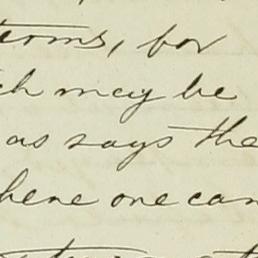 terms, for
ch may be
as says the
here one can